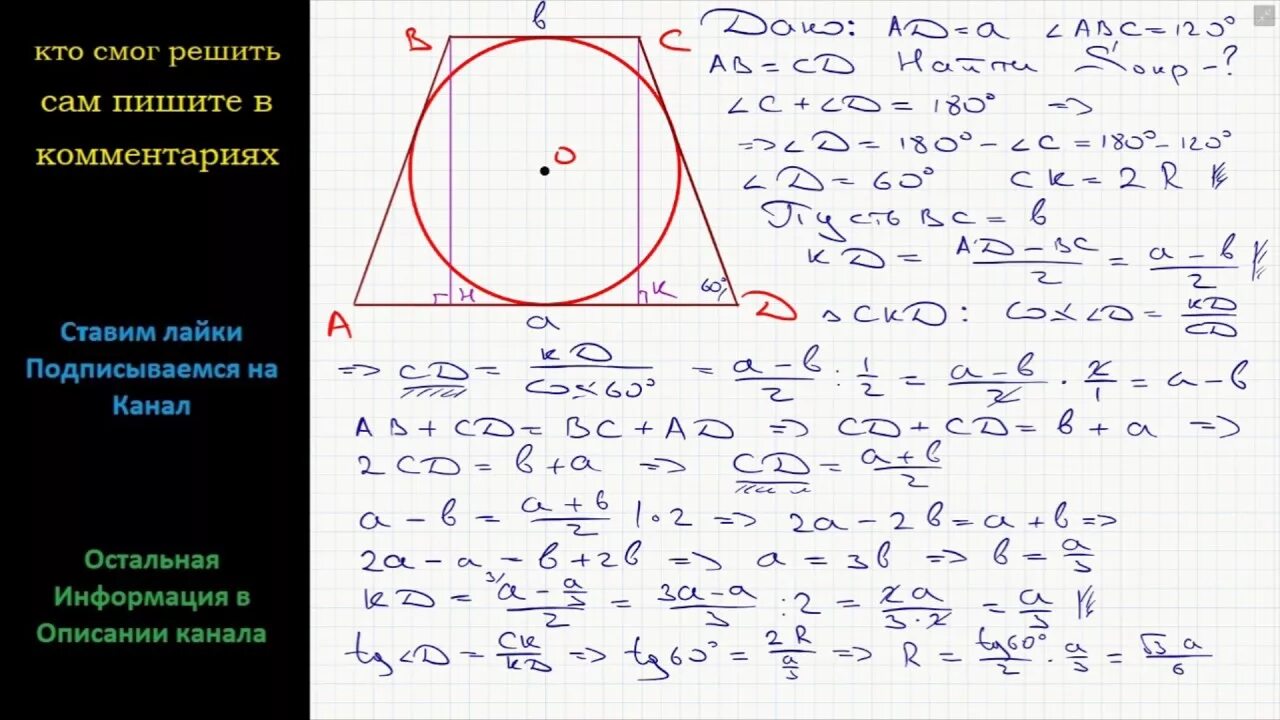 кто смог решить
сам пишите в
комментариях
Ставим лайки
Подписываемся на
Канал
Остальная
Информация в
Описании канала
B
в
C
O
A
H
K
60°
D
a
Дано: AD = a ∠ABC = 120°
AB = CD Найти Sокр - ?
∠C + ∠D = 180° =>
=> ∠D = 180° - ∠C = 180° - 120°
∠D = 60° CK = 2R
Пусть BC = в
KD = (AD - BC)/2 = (a - в)/2
△CKD: cos∠D = KD/CD
=> CD = KD/cos60° = (a - в)/2 : 1/2 = (a - в)/2 · 2/1 = a - в
AB + CD = BC + AD => CD + CD = в + a =>
2CD = в + a => CD = (a + в)/2
a - в = (a + в)/2 | · 2 => 2a - 2в = a + в =>
2a - a = в + 2в => a = 3в => в = a/3
KD = (³⁄a - a/3)/2 = (3a - a)/3 : 2 = 2a/(3·2) = a/3
tg∠D = CK/KD => tg60° = 2R/(a/3) => R = tg60°/2 · a/3 = √3 a/6